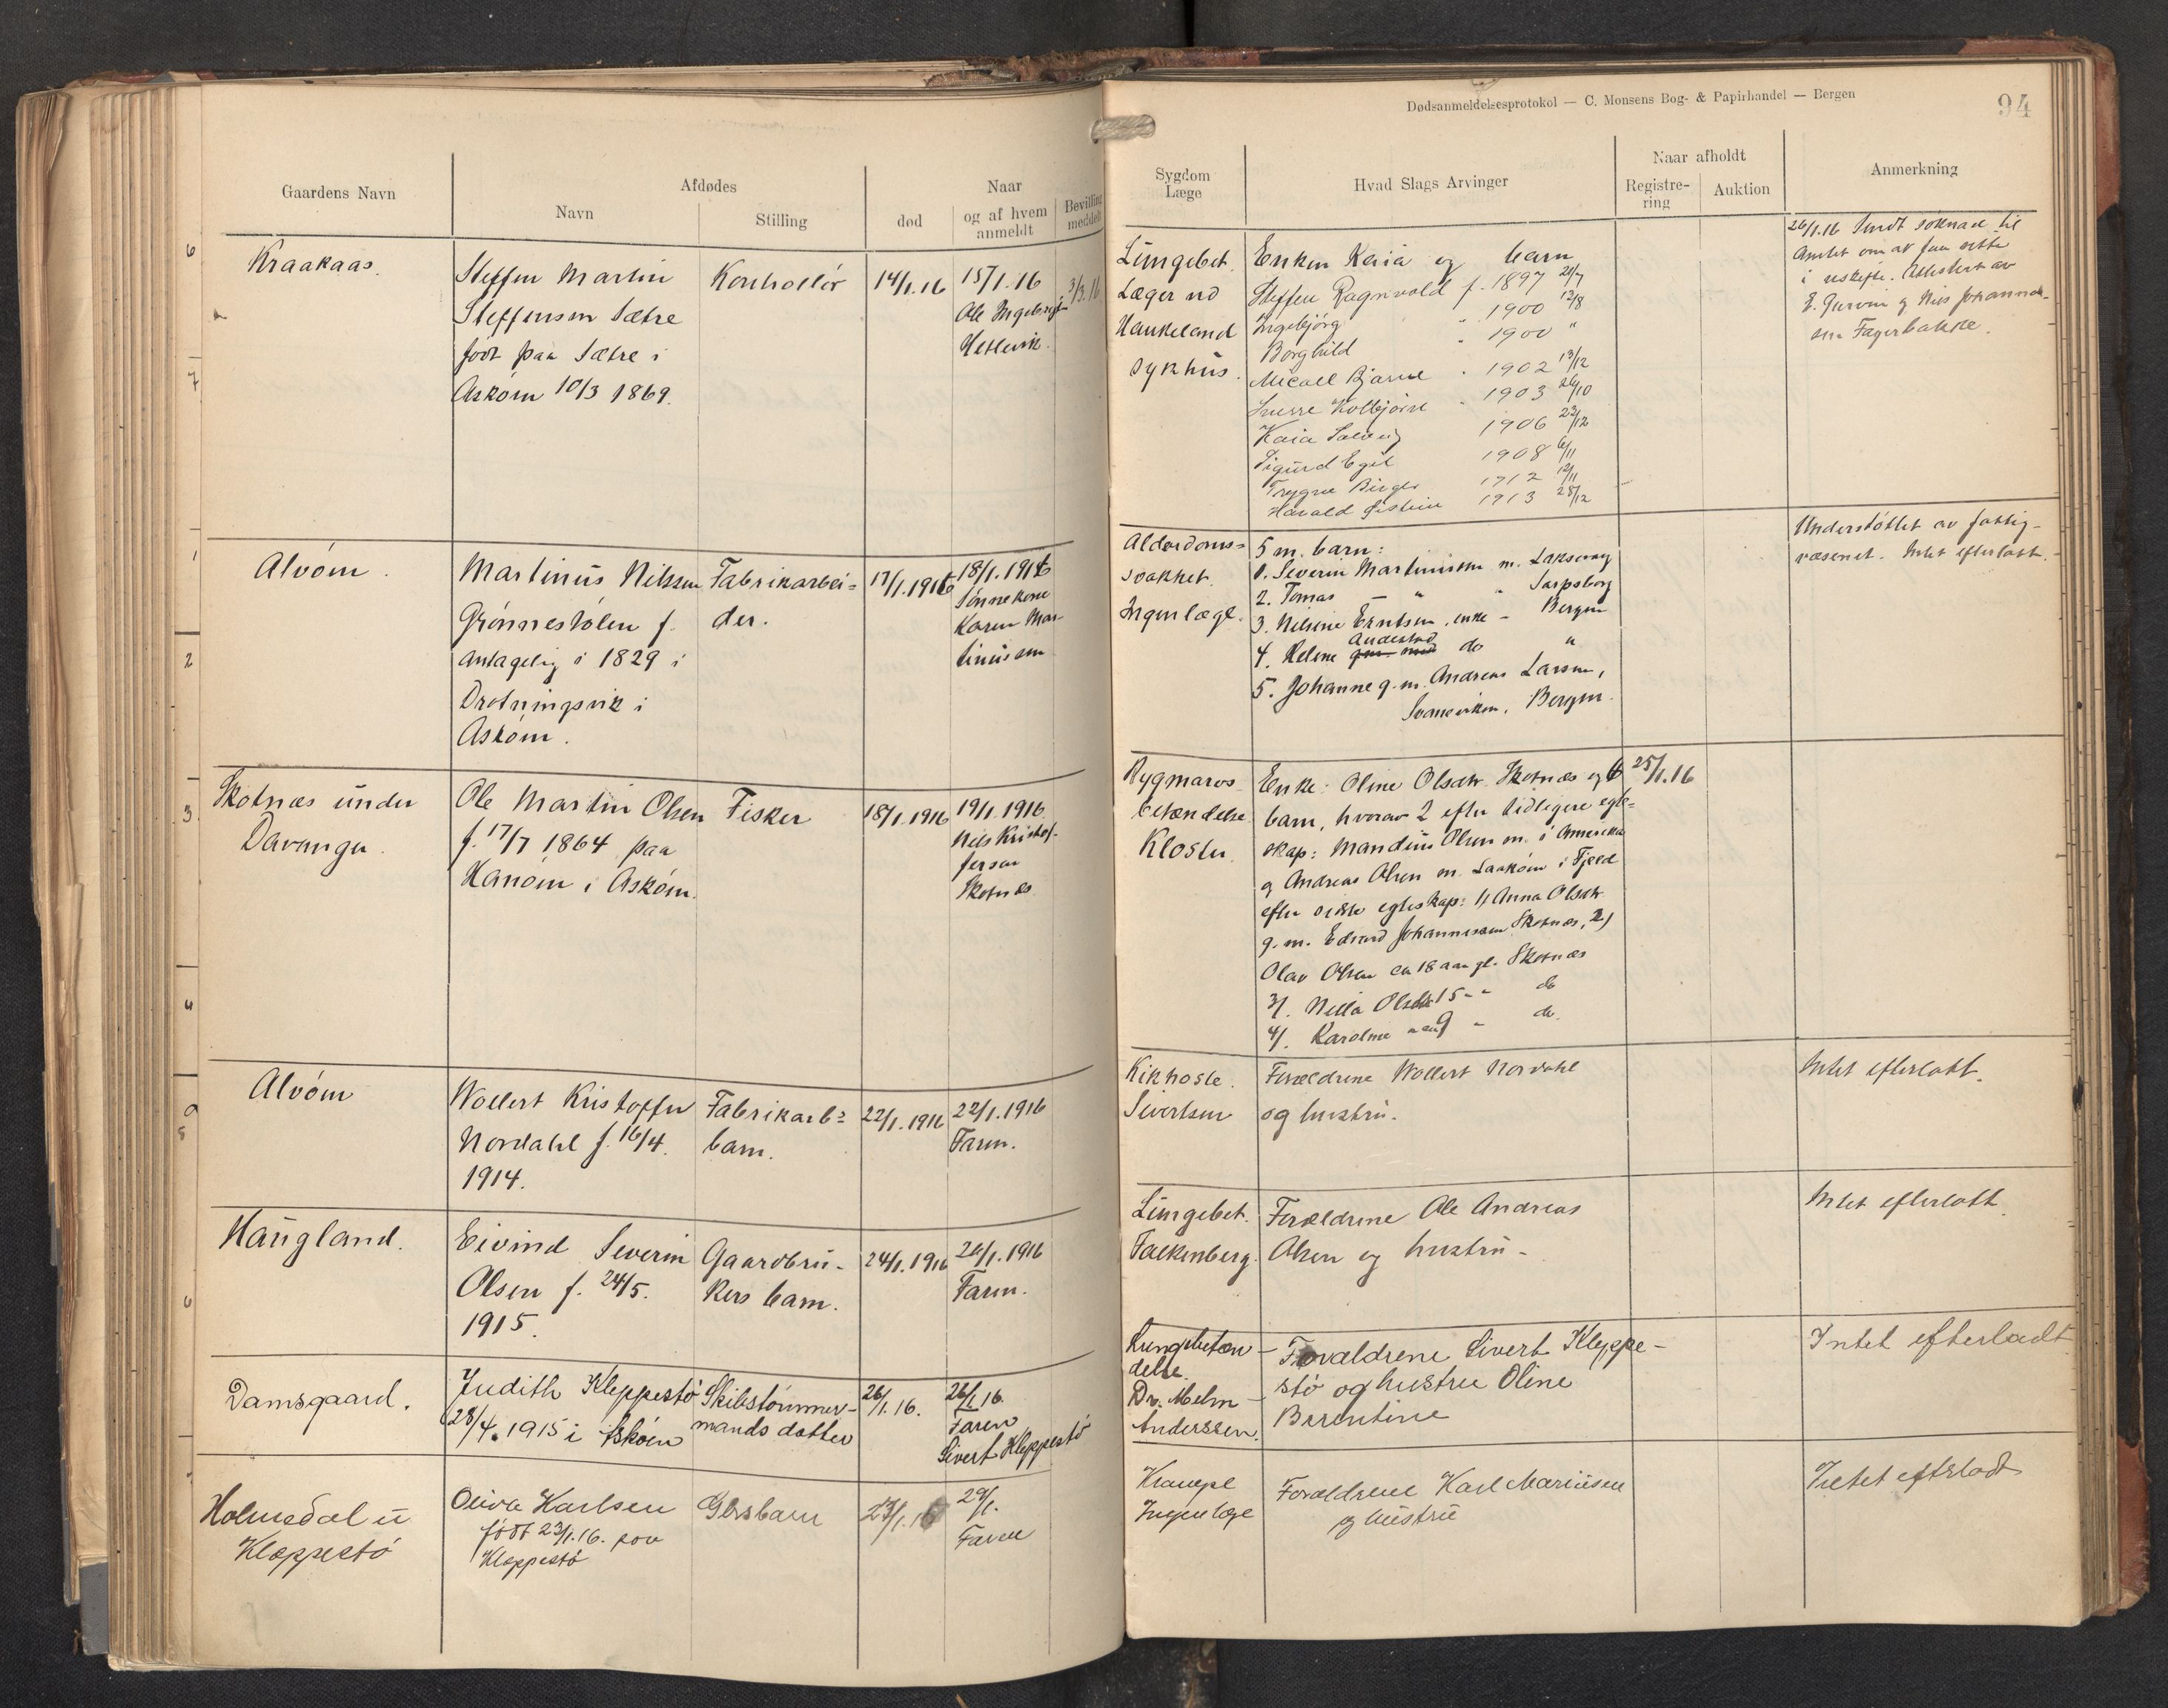 Dødsanmeldelsesprotokol — C. Monsens Bog- & Papirhandel — Bergen
94
Gaardens Navn
Afdødes
Navn
Stilling
død
Naar
og af hvem
anmeldt
Bevilling
meddelt
Sygdom
Læge
Hvad Slags Arvinger
Naar afholdt
Registre-
ring
Auktion
Anmerkning
Kraakaas.
Steffen Martin
Steffensen Sætre
født paa Sætre i
Askøin 10/3 1869.
Kontrollør
14/1.16
15/1.16
Ole Ingebrigt
Hetlevik.
3/3.16
Lungebet.
Læger ved
Haukeland
sykhus.
Enken Kaia og barn
Steffen Ragnvald f. 1897 21/7
Ingebjørg " 1900 12/8
Borghild " 1900 "
Micael Bjarne " 1902 13/12
Sverre Kolbjørn " 1903 26/10
Kaia Solveig 1906 23/12
Sigurd Egil 1908 6/11
Trygve Birger 1912 12/11
Harald Øistein 1913 28/12
26/1.16 sendt søknad til
Amtet om at faa sitte
i uskifte. Attestert av
E. Gjervin og Nils Johannes-
sen Fagerbakke.
Alvøen.
Martinus Nilssen
Grønnestølen f.
antagelig i 1829 i
Drotningsvik i
Askøin.
Fabrikarbei=
der.
17/1.1916
18/1.1916
Sønnekone
Karen Mar-
tinussen
Alderdoms=
svakhet.
Ingen læge.
5 m. barn:
1. Severin Martinussen m. Laksevaag
2. Tomas — " " Sarpsborg
3. Nilsine Erntsen, enke - Bergen
4. Helene Audestad do "
5. Johanne g.m. Andreas Larsen,
Svaneviken, Bergen.
Understøttet av fattig-
væsenet. Intet efterlatt.
Skotnæs under
Davanger.
Ole Martin Olsen
f. 17/7 1864 paa
Hanøen i Askøin.
Fisker
18/1.1916
19/1.1916
Nils Kristof-
fersen
Skotnæs.
Rygmarvs
betændelse
Kloster.
Enke: Oline Olsdtr. Skotnæs og 6
barn, hvorav 2 efter tidligere egte=
skap: Mandius Olsen m. i Amerika
og Andreas Olsen m. Laakøin i Fjeld
efter sidste egteskap: 1) Anna Olsdtr.
g.m. Edvard Johannessen Skotnæs, 2)
Olav Olsen ca 18 aar gl. Skotnæs
3/. Nella Olsdtr 15 - " do
4/. Karoline " 9 - do.
25/1.16
Alvøen
Wollert Kristoffer
Nordahl f. 16/4.
1914.
Fabrikarb=
barn.
22/1.1916
22/1.1916
Faren.
Kikhoste.
Sivertsen
Forældrene Wollert Nordahl
og hustru.
Intet efterlatt.
Haugland.
Eivind Severin
Olsen f. 24/5.
1915.
Gaardbru-
kers barn.
24/1.1916
26/1.1916
Faren.
Lungebet.
Falkenberg.
Forældrene Ole Andreas
Olsen og hustru -
Intet efterlatt.
Damsgaard.
Judith Kleppestø
(28/4.1915 i Askøen
Skibstømmer-
mands datter
26/1.16.
26/1.16.
Faren
Sivert Kleppestø
Lungebetæn-
delse.
Dr. Mehn-
Anderssen.
Forældrene Sivert Kleppe-
stø og hustru Oline
Berentine
Intet efterladt
Holmedal u
Kleppestø
Oliva Karlsen
født 23/1.16. paa
Kleppestø
Gbrsbarn
23/1.16
29/1.
Faren
Krampe
Ingen læge
Forældrene Karl Mariusen
og hustru
Intet efterladt